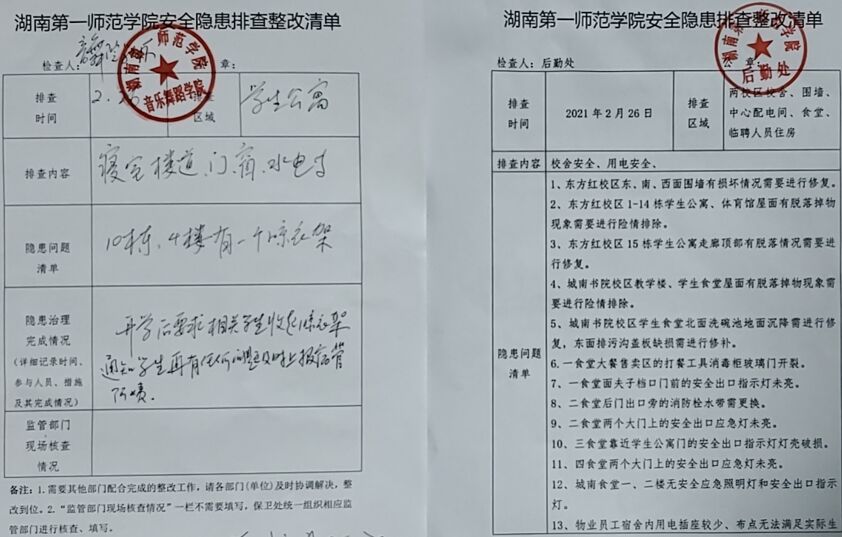 湖南第一师范学院安全隐患排查整改清单
检查人:
章:
音乐舞蹈学院
排查
时间
排查
区域
学生公寓
排查内容
寝室楼道、门、窗、水电等
隐患问题
清单
10栋、4楼有一个晾衣架
隐患治理
完成情况
(详细记录时间、
参与人员、措施
及其完成情况)
开学后要求相关学生收起晾衣架
通知学生再有任何问题及时上报宿管
阿姨。
监管部门
现场核查
情况
备注:1.需要其他部门配合完成的整改工作,请各部门(单位)及时协调解决,整
改到位。2.“监管部门现场核查情况”一栏不需要填写,保卫处统一组织相应监
管部门进行核查、填写。
湖南第一师范学院安全隐患排查整改清单
检查人:后勤处
章:
后勤处
排查
时间
2021年2月26日
排查
区域
两校区校舍、围墙、
中心配电间、食堂、
临聘人员住房
排查内容
校舍安全、用电安全、
隐患问题
清单
1、东方红校区东、南、西面围墙有损坏情况需要进行修复。
2、东方红校区1-14栋学生公寓、体育馆屋面有脱落掉物
现象需要进行险情排除。
3、东方红校区15栋学生公寓走廊顶部有脱落情况需要进
行修复。
4、城南书院校区教学楼、学生食堂屋面有脱落掉物现象需
要进行险情排除。
5、城南书院校区学生食堂北面洗碗池地面沉降需进行修
复,东面排污沟盖板缺损需进行修补。
6.一食堂大餐售卖区的打餐工具消毒柜玻璃门开裂。
7、一食堂面夫子档口门前的安全出口指示灯未亮。
8、二食堂后门出口旁的消防栓水带需更换。
9、二食堂两个大门上的安全出口应急灯未亮。
10、三食堂靠近学生公寓门的安全出口指示灯灯壳破损。
11、四食堂两个大门上的安全出口应急灯未亮。
12、城南食堂一、二楼无安全应急照明灯和安全出口指示
灯。
13、物业员工宿舍内用电插座较少、布点无法满足实际生